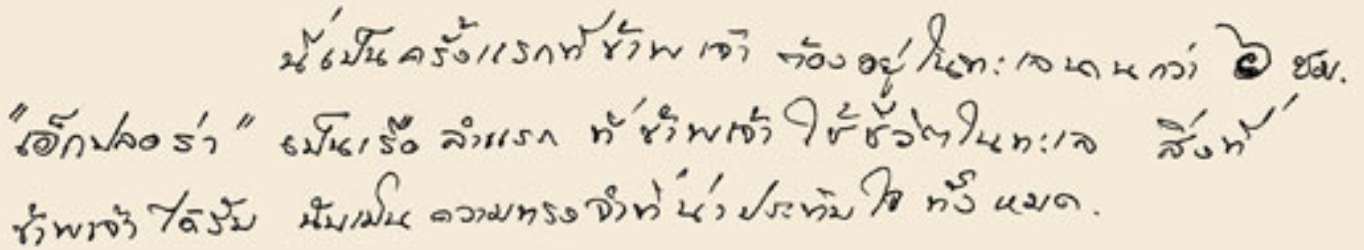 นี่เป็นครั้งแรกที่ข้าพเจ้า ต้องอยู่ในทะเลนานกว่า ๖ ชม.
"เอ็กปลอร่า" เป็นเรือลำแรก ที่ข้าพเจ้าใช้ชีวิตในทะเล สิ่งที่
ข้าพเจ้าได้รับ นับเป็นความทรงจำที่น่าประทับใจทั้งหมด.